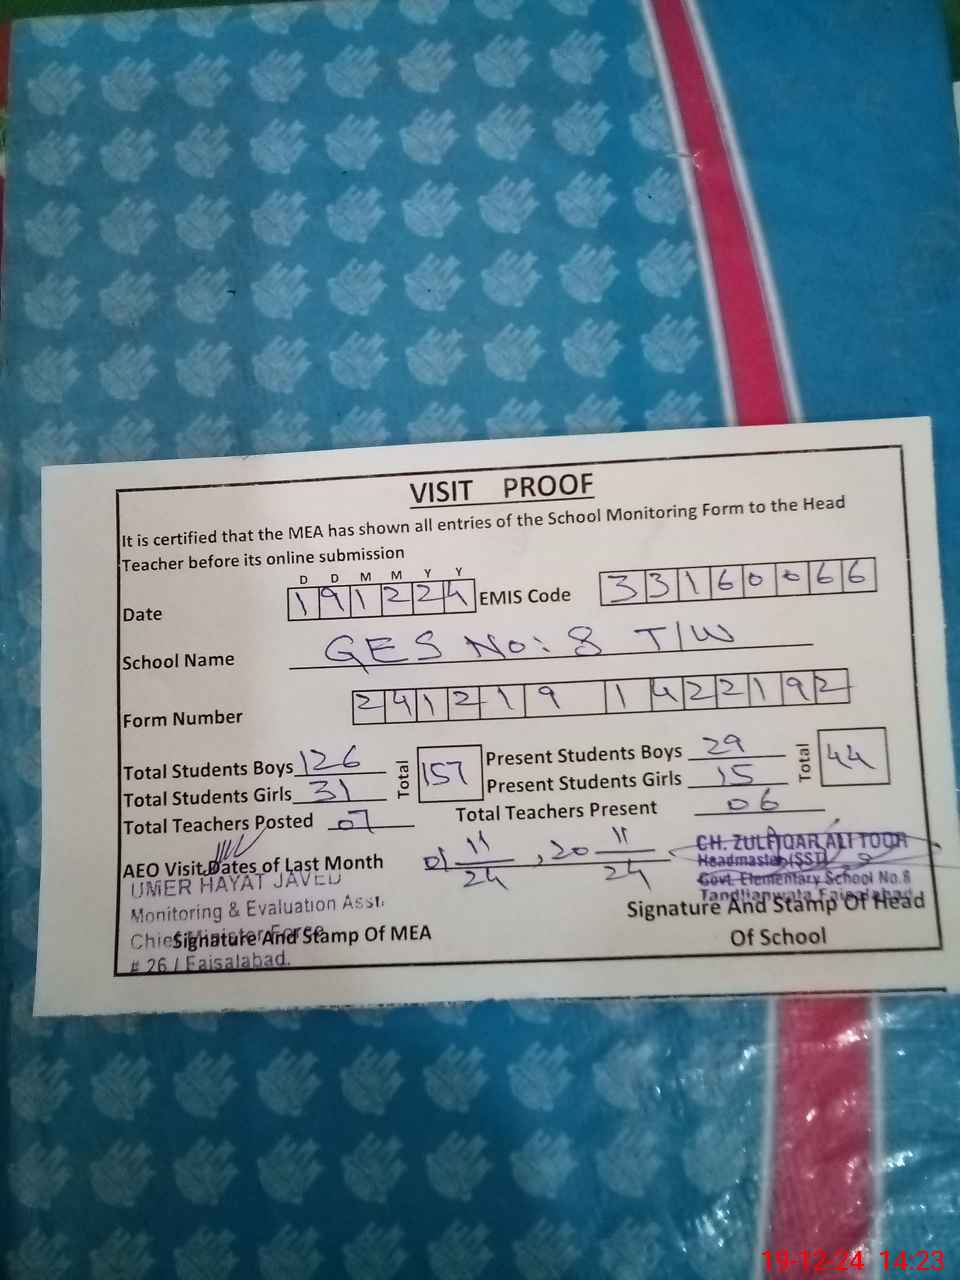 VISIT PROOF
It is certified that the MEA has shown all entries of the School Monitoring Form to the Head
Teacher before its online submission
D D M M Y Y
Date 191224 EMIS Code 33160066
School Name GES No: 8 T/W
Form Number 241219 1422192
Total Students Boys 126 Total 157 Present Students Boys 29 Total 44
Total Students Girls 31 Present Students Girls 15
Total Teachers Posted 07 Total Teachers Present 06
AEO Visit Dates of Last Month 01 11/24, 20 11/24
CH. ZULFIQAR ALI TOOR
Headmaster (SST)
Govt. Elementary School No.8
Tandlianwala Faisalabad
Signature And Stamp Of Head
Of School
UMER HAYAT JAVED
Monitoring & Evaluation Asst.
Chief Minister Force
# 26 / Faisalabad.
Signature And Stamp Of MEA
19-12-24 14:23